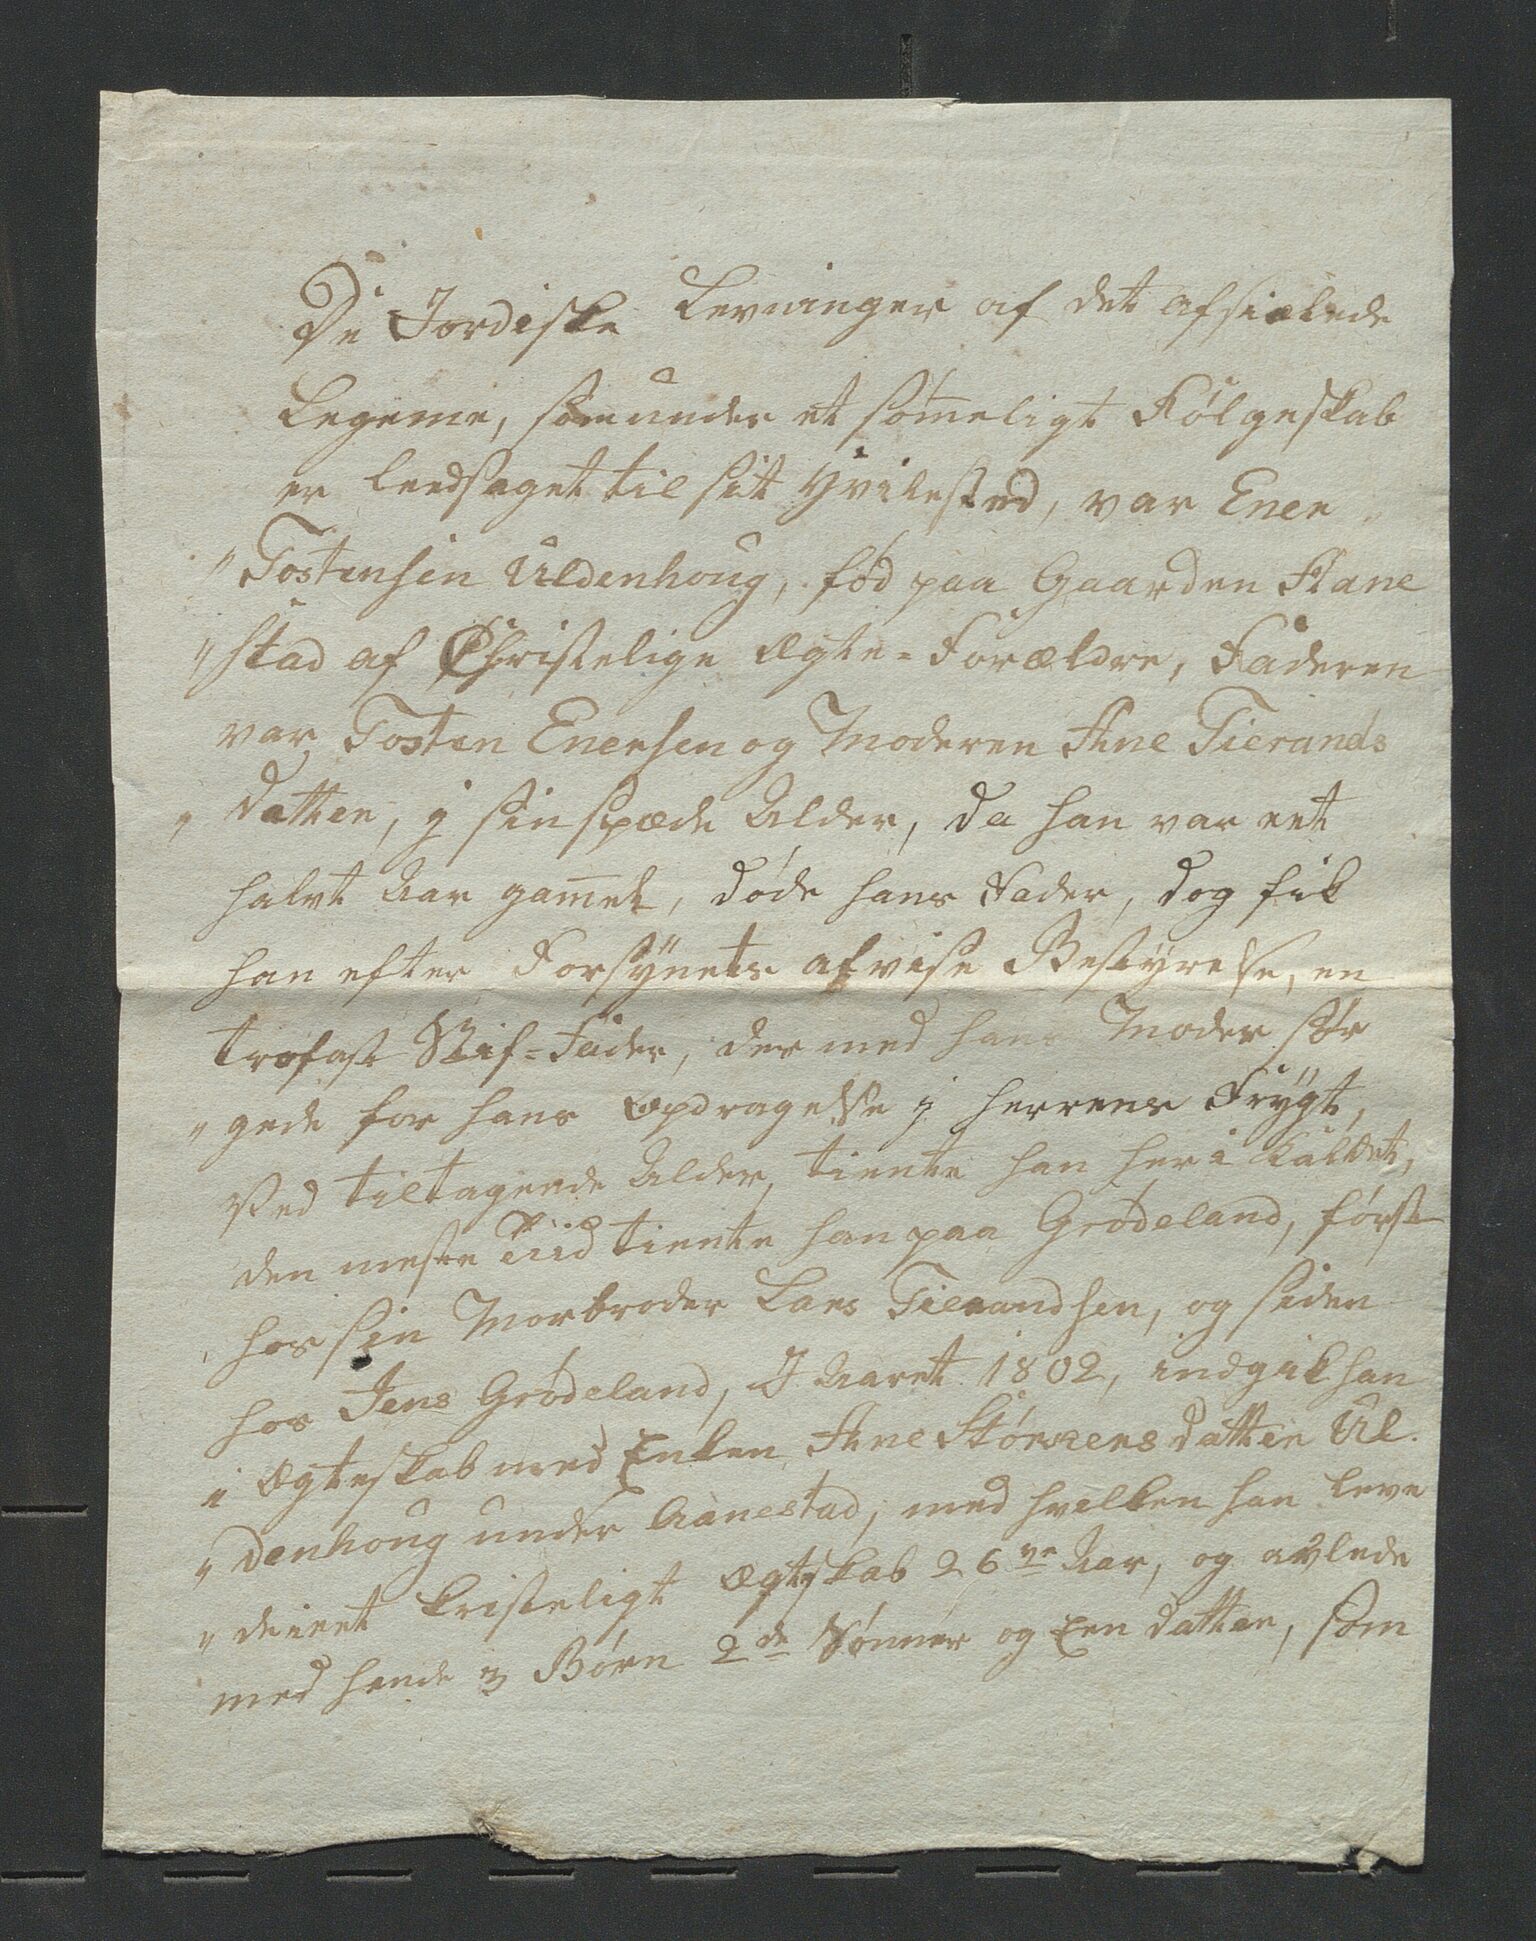 De Jordiske Levninger af det afsiælede
Legeme, som under et sømeligt Følgeskab
er leedsaget til sit Hvilested, var Ener
"Tostensen Uldenhoug, fød paa Gaarden Aane
"stad af Christelige Ægte=Forældre, Faderen
var Tosten Enersen og Moderen Ane Tierands
" Datter, j sin spæde Alder, da han var eet
halvt Aar gamel, døde hans Fader, dog fik
han efter Forsÿnets alvise Bestÿrelse, en
trofast Stif=Fader, der med hans Moder sør
" gede for hans Opdragelse j Herrens Frÿgt,
Ved tiltagende Alder, tiente han her i Kaldet,
den meste Tiid tiente han paa Grødeland, først
hos sin Morbroder Lars Tierandsen, og siden
hos Jens Grødeland, I Aaret 1802, indgik han
i Ægteskab med Enken Ane Størkersdatter Ul.
" denhoug under Aanestad, med hvelken han leve
" de i eet kristeligt Ægteskab 26 ve Aar, og avlede
med hende 3 Børn 2de Sønner og Een datter, som